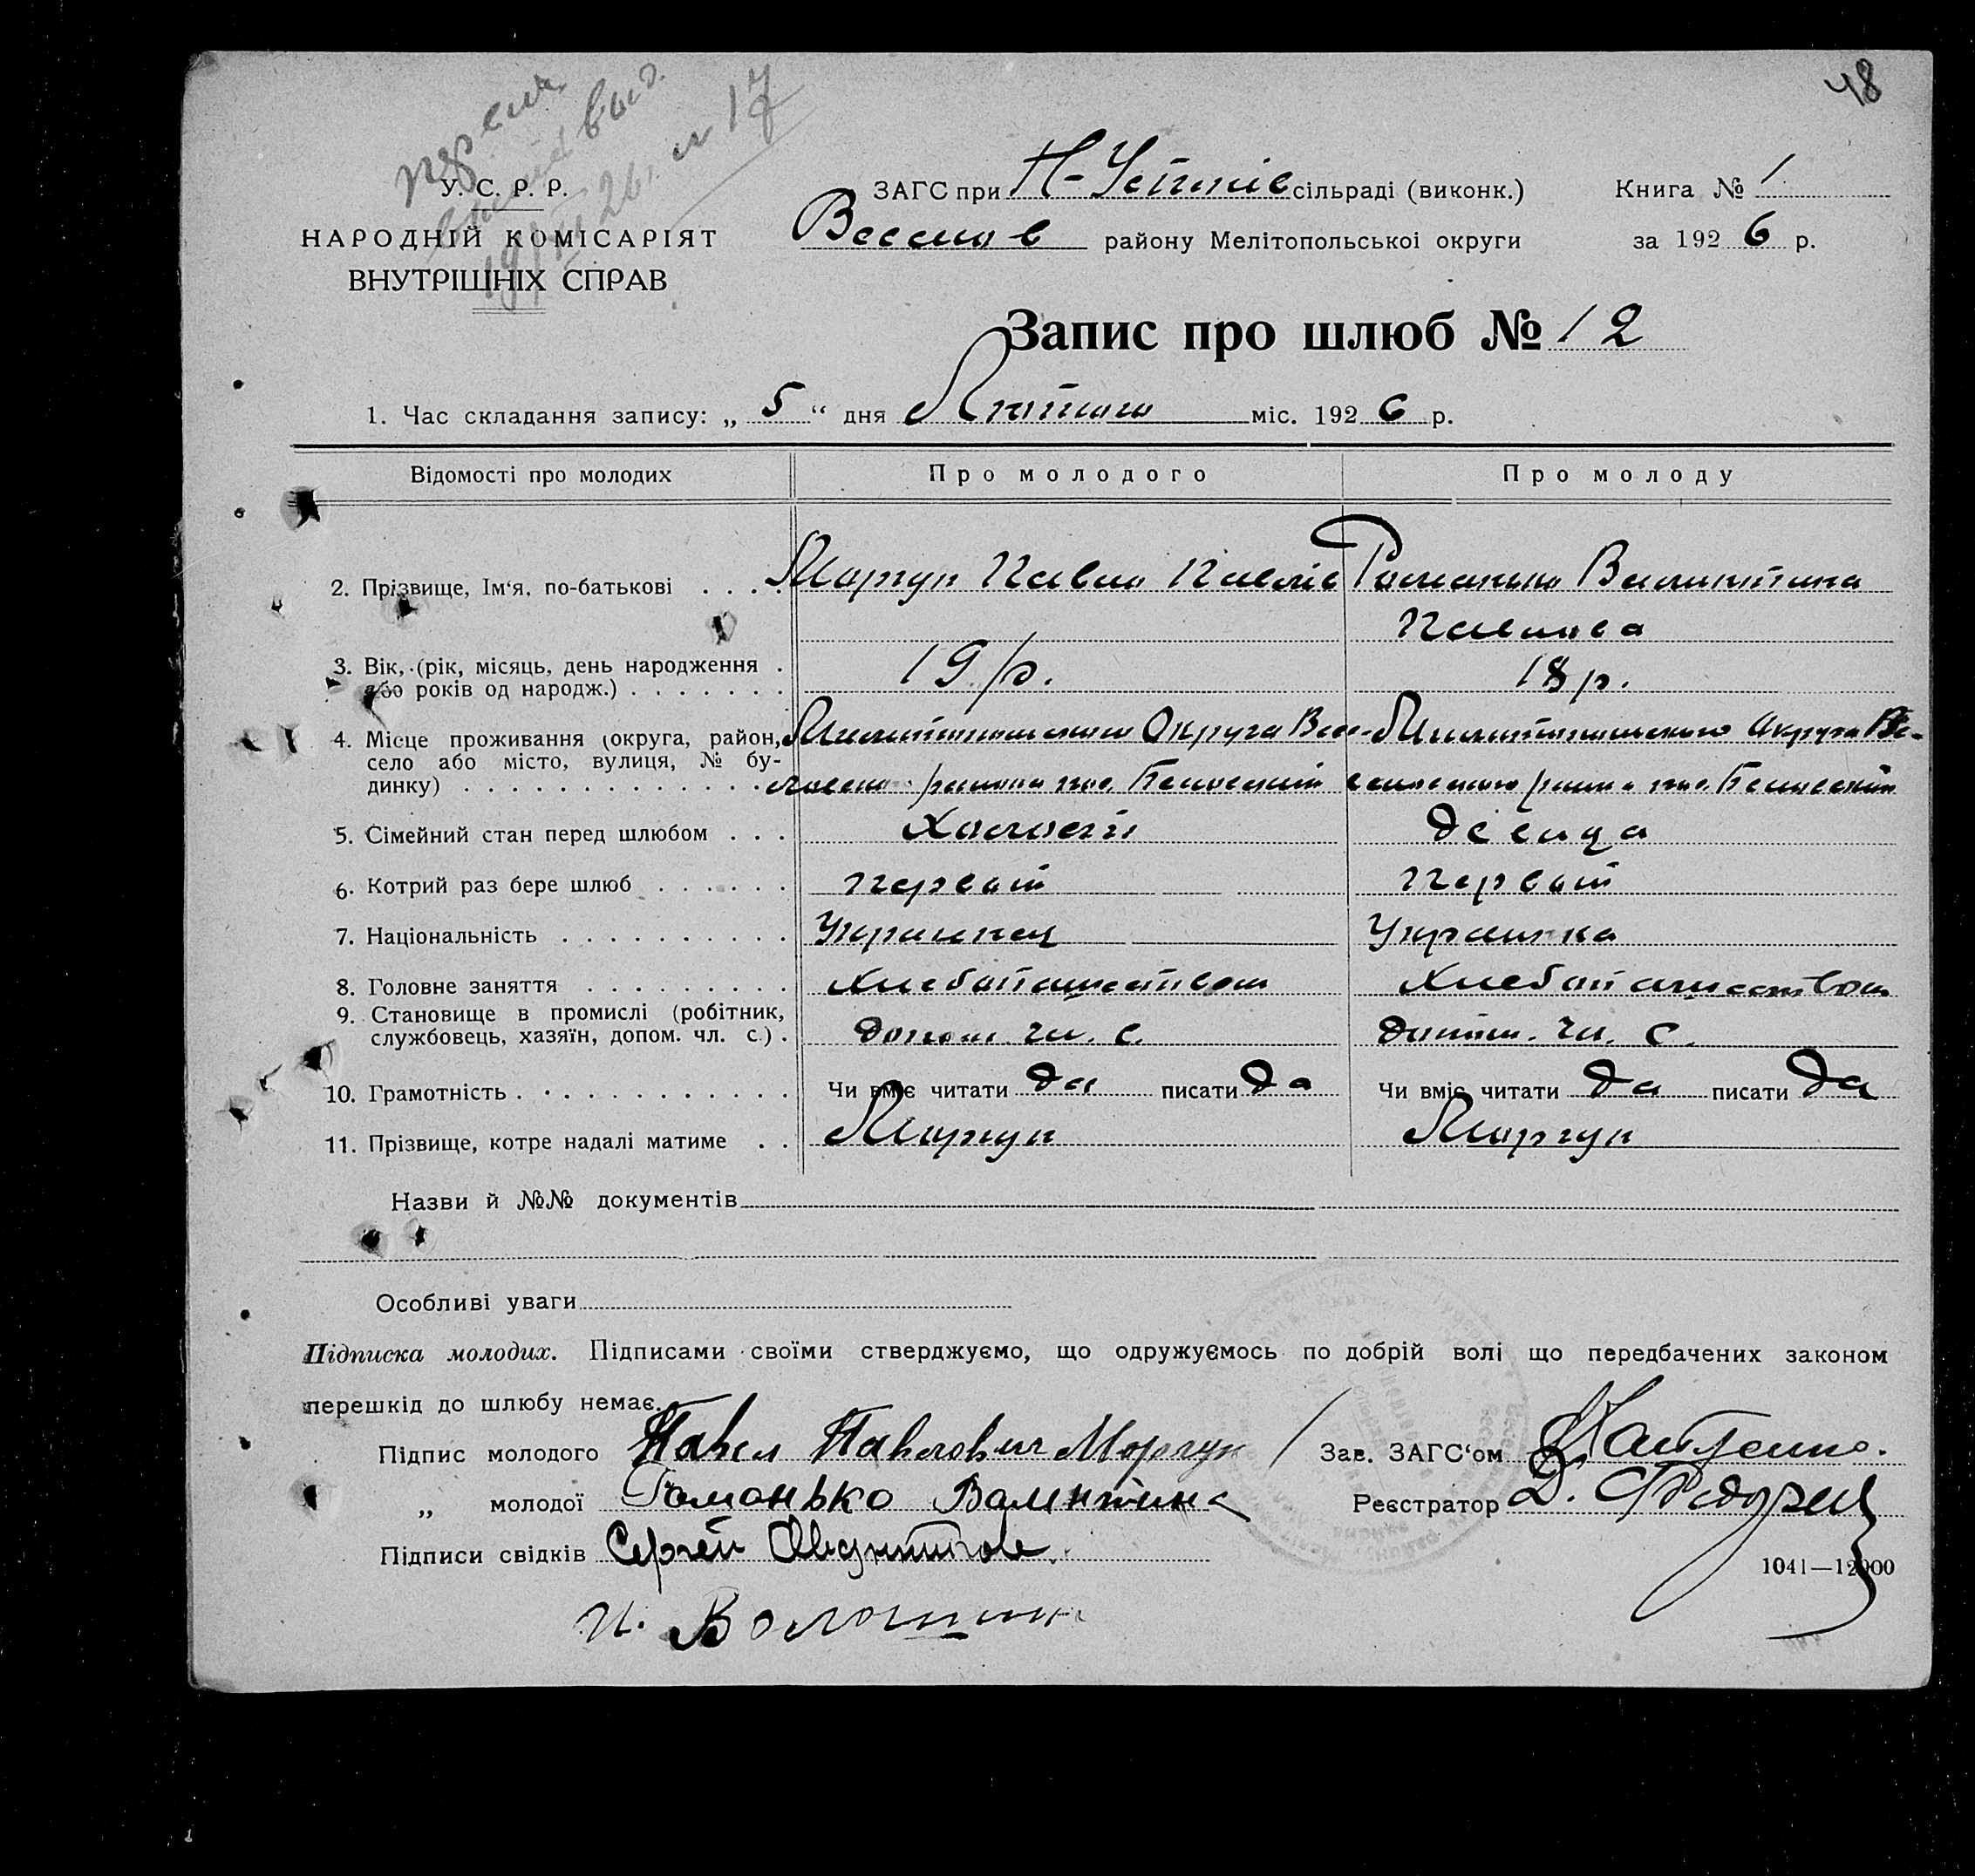 48
У. С. Р. Р.
НАРОДНІЙ КОМІСАРІЯТ
ВНУТРІШНІХ СПРАВ
ЗАГС при сільраді (виконк.)
Весел в району Мелітопольськоі округи
Книга № 1
за 1926 р.
Запис про шлюб № 12
1. Час складання запису: „ 5 “ дня Лютого міс. 1926 р.
Відомості про молодих Про молодого Про молоду
2. Прізвище, Ім‘я, по-батькові . . . . Моргун Павло Павлів Романько Валентина
Павлова
3. Вік, (рік, місяць, день народження . 19 р. 18 р.
або років од народж.) . . . . . . .
4. Місце проживання (округа, район, Мелитопольского Округа Мелитопольского Округа
село або місто, вулиця, № бу-
динку) . . . . . . . . . . . . . района района
5. Сімейний стан перед шлюбом . . . Холостй девица
6. Котрий раз бере шлюб . . . . . . первий первий
7. Національність . . . . . . . . . . Украинец Украинка
8. Головне заняття . . . . . . . . . Хлебопашеством Хлебопашеством
9. Становище в промислі (робітник,
службовець, хазяїн, допом. чл. с.) . допом. чл. с. допом. чл. с.
10. Грамотність . . . . . . . . . . . Чи вміє читати да писати да Чи вміє читати да писати да
11. Прізвище, котре надалі матиме . . Моргун Моргун
Назви й №№ документів
Особливі уваги
Підписка молодих. Підписами своїми стверджуємо, що одружуємось по добрій волі що передбачених законом
перешкід до шлюбу немає.
Підпис молодого Павел Павлович Моргун Зав. ЗАГС‘ом
„ молодої Романько Валентина Реєстратор Д.
Підписи свідків Сергей
1041—12000
И. Волошин